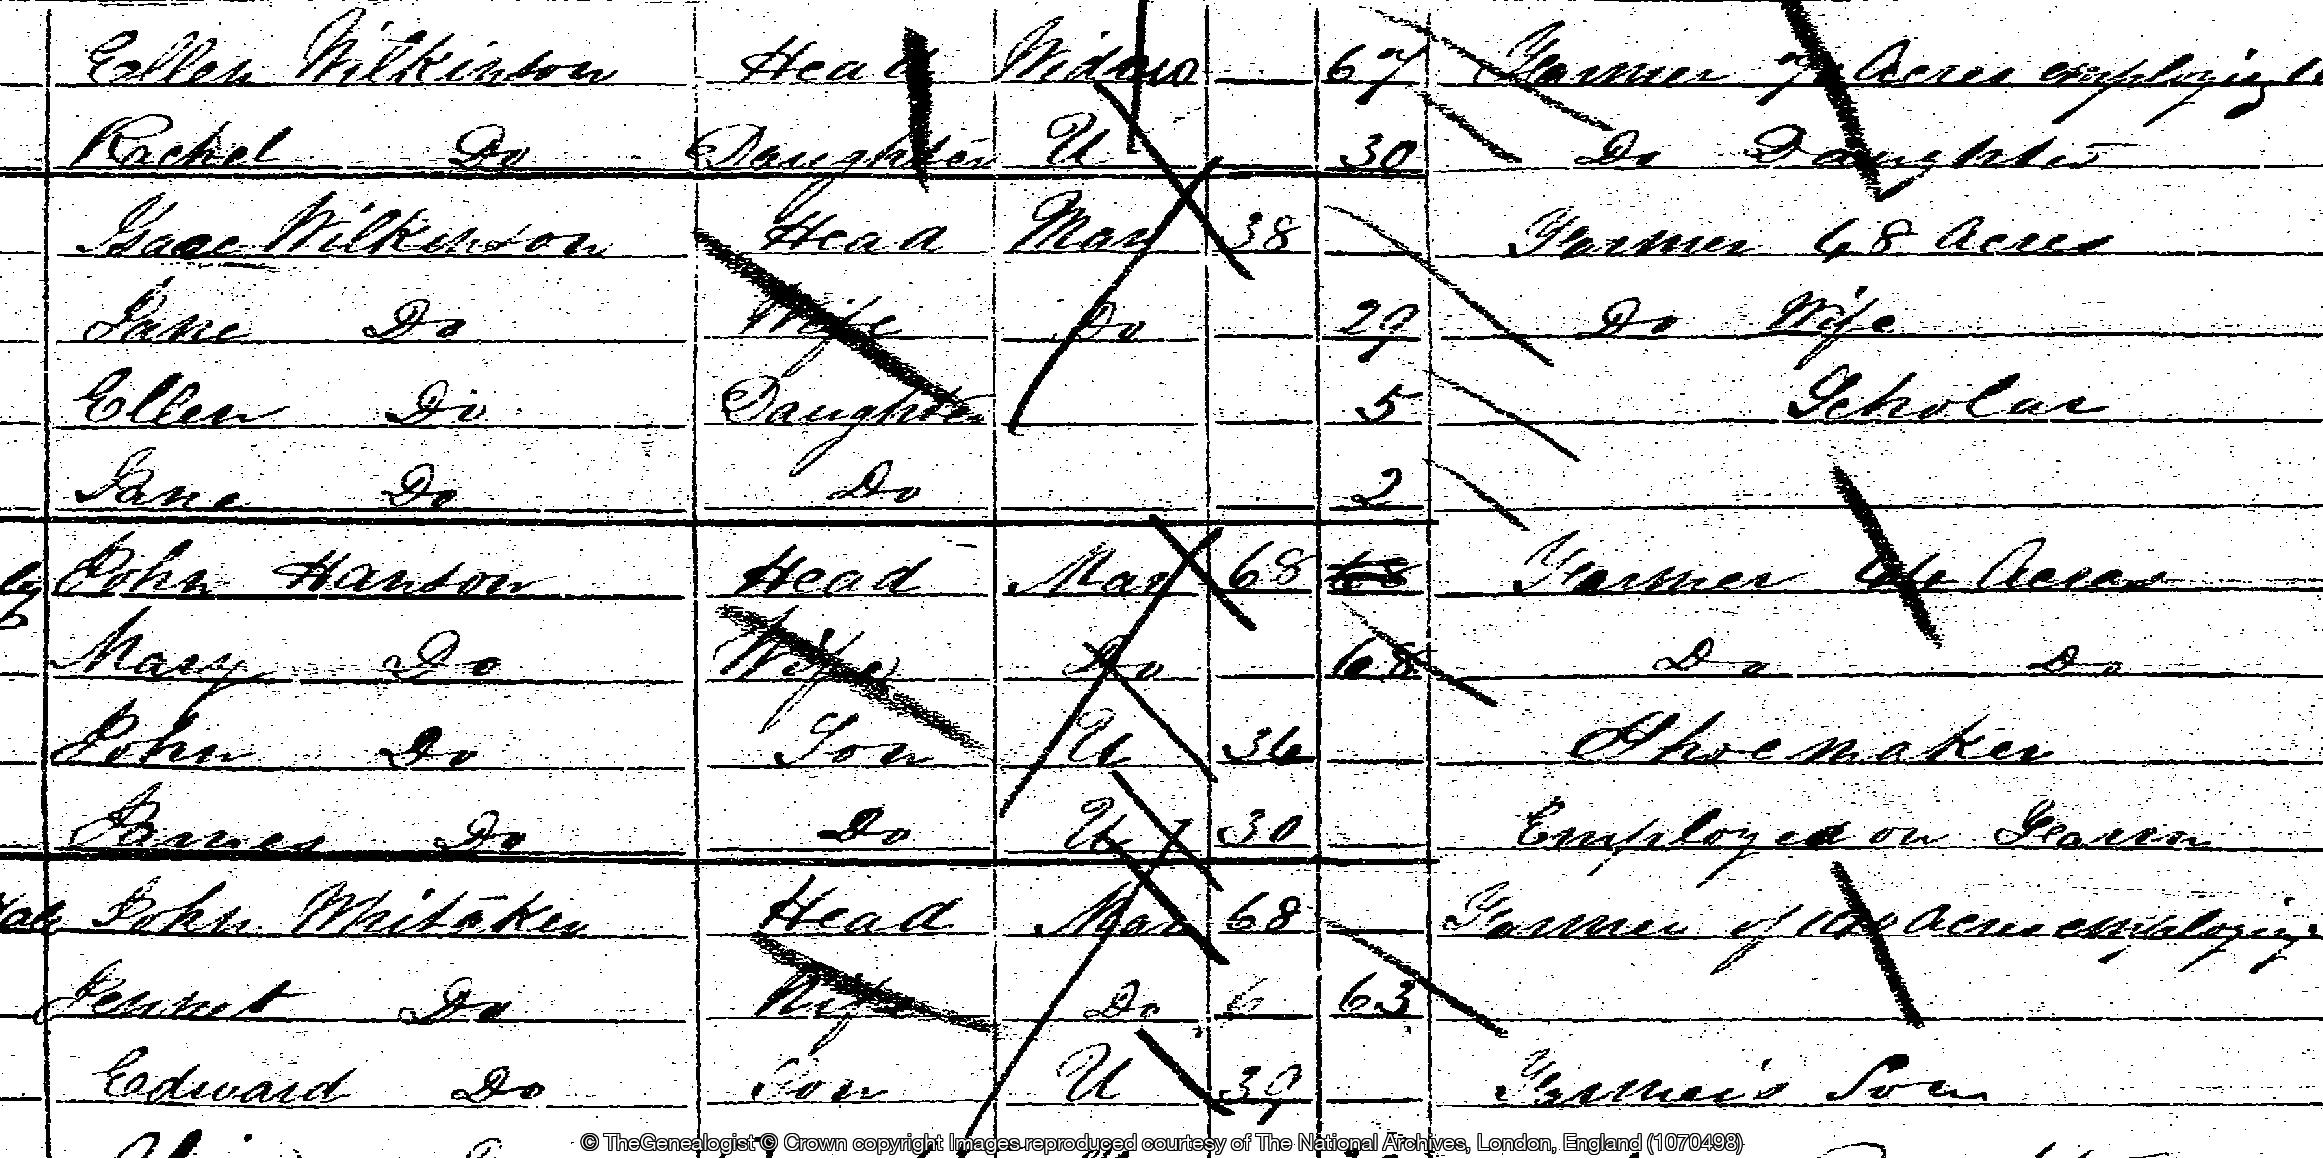 Ellen Wilkinson Head Widow 67 Farmer 7 Acres employing
Rachel Do Daughter U 30 Do Daughter
Isaac Wilkinson Head Mar 38 Farmer 68 Acres
Jane Do Wife Do 29 Do Wife
Ellen Do Daughter 5 Scholar
Jane Do Do 2
John Hanson Head Mar 68 68 Farmer Acres
Mary Do Wife Do 68 Do Do
John Do Son U 36 Shoemaker
James Do Do U 30 Employed on Farm
John Whitaker Head Mar 68 Farmer of Acres employing
Jennet Do Wife Do 6 63
Edward Do Son U 39 Farmer's Son
© TheGenealogist © Crown copyright Images reproduced courtesy of The National Archives, London, England (1070498)